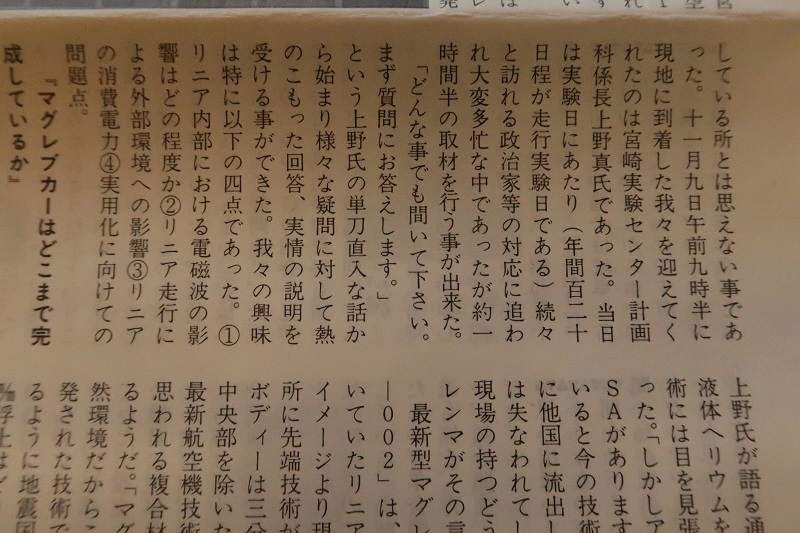 している所とは思えない事であ
った。十一月九日午前九時半に
現地に到着した我々を迎えてく
れたのは宮崎実験センター計画
科係長上野真氏であった。当日
は実験日にあたり（年間百二十
日程が走行実験日である）続々
と訪れる政治家等の対応に追わ
れ大変多忙な中であったが約一
時間半の取材を行う事が出来た。
「どんな事でも聞いて下さい。
まず質問にお答えします。」
という上野氏の単刀直入な話か
ら始まり様々な疑問に対して熱
のこもった回答、実情の説明を
受ける事ができた。我々の興味
は特に以下の四点であった。①
リニア内部における電磁波の影
響はどの程度か②リニア走行に
よる外部環境への影響③リニア
の消費電力④実用化に向けての
問題点。
『マグレブカーはどこまで完
成しているか』
上野氏が語る通
液体ヘリウムを
術には目を見張
った。「しかしア
ＳＡがあります
いると今の技術
に他国に流出し
は失なわれてし
現場の持つどう
レンマがその言
最新型マグレ
―００２」は、
いていたリニア
イメージより現
所に先端技術が
ボディーは三分
中央部を除いた
最新航空機技術
思われる複合材
るようだ。「マグ
然環境だからこ
発された技術で
るように地震国